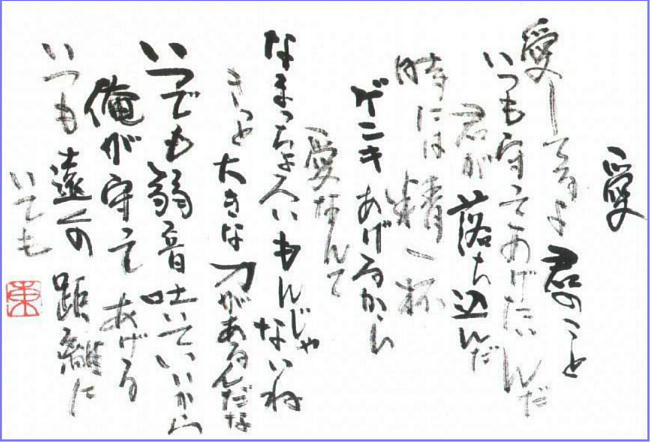 愛
愛してるよ 君のこと
いつも守ってあげたいんだ
君が落ち込んだ
時には精一杯
ゲンキあげるからい
愛なんて
なまっちょろいもんじゃないね
きっと大きな力があるんだな
いつでも弱音吐いていいから
俺が守ってあげる
いつも遠くの距離に
いても
東